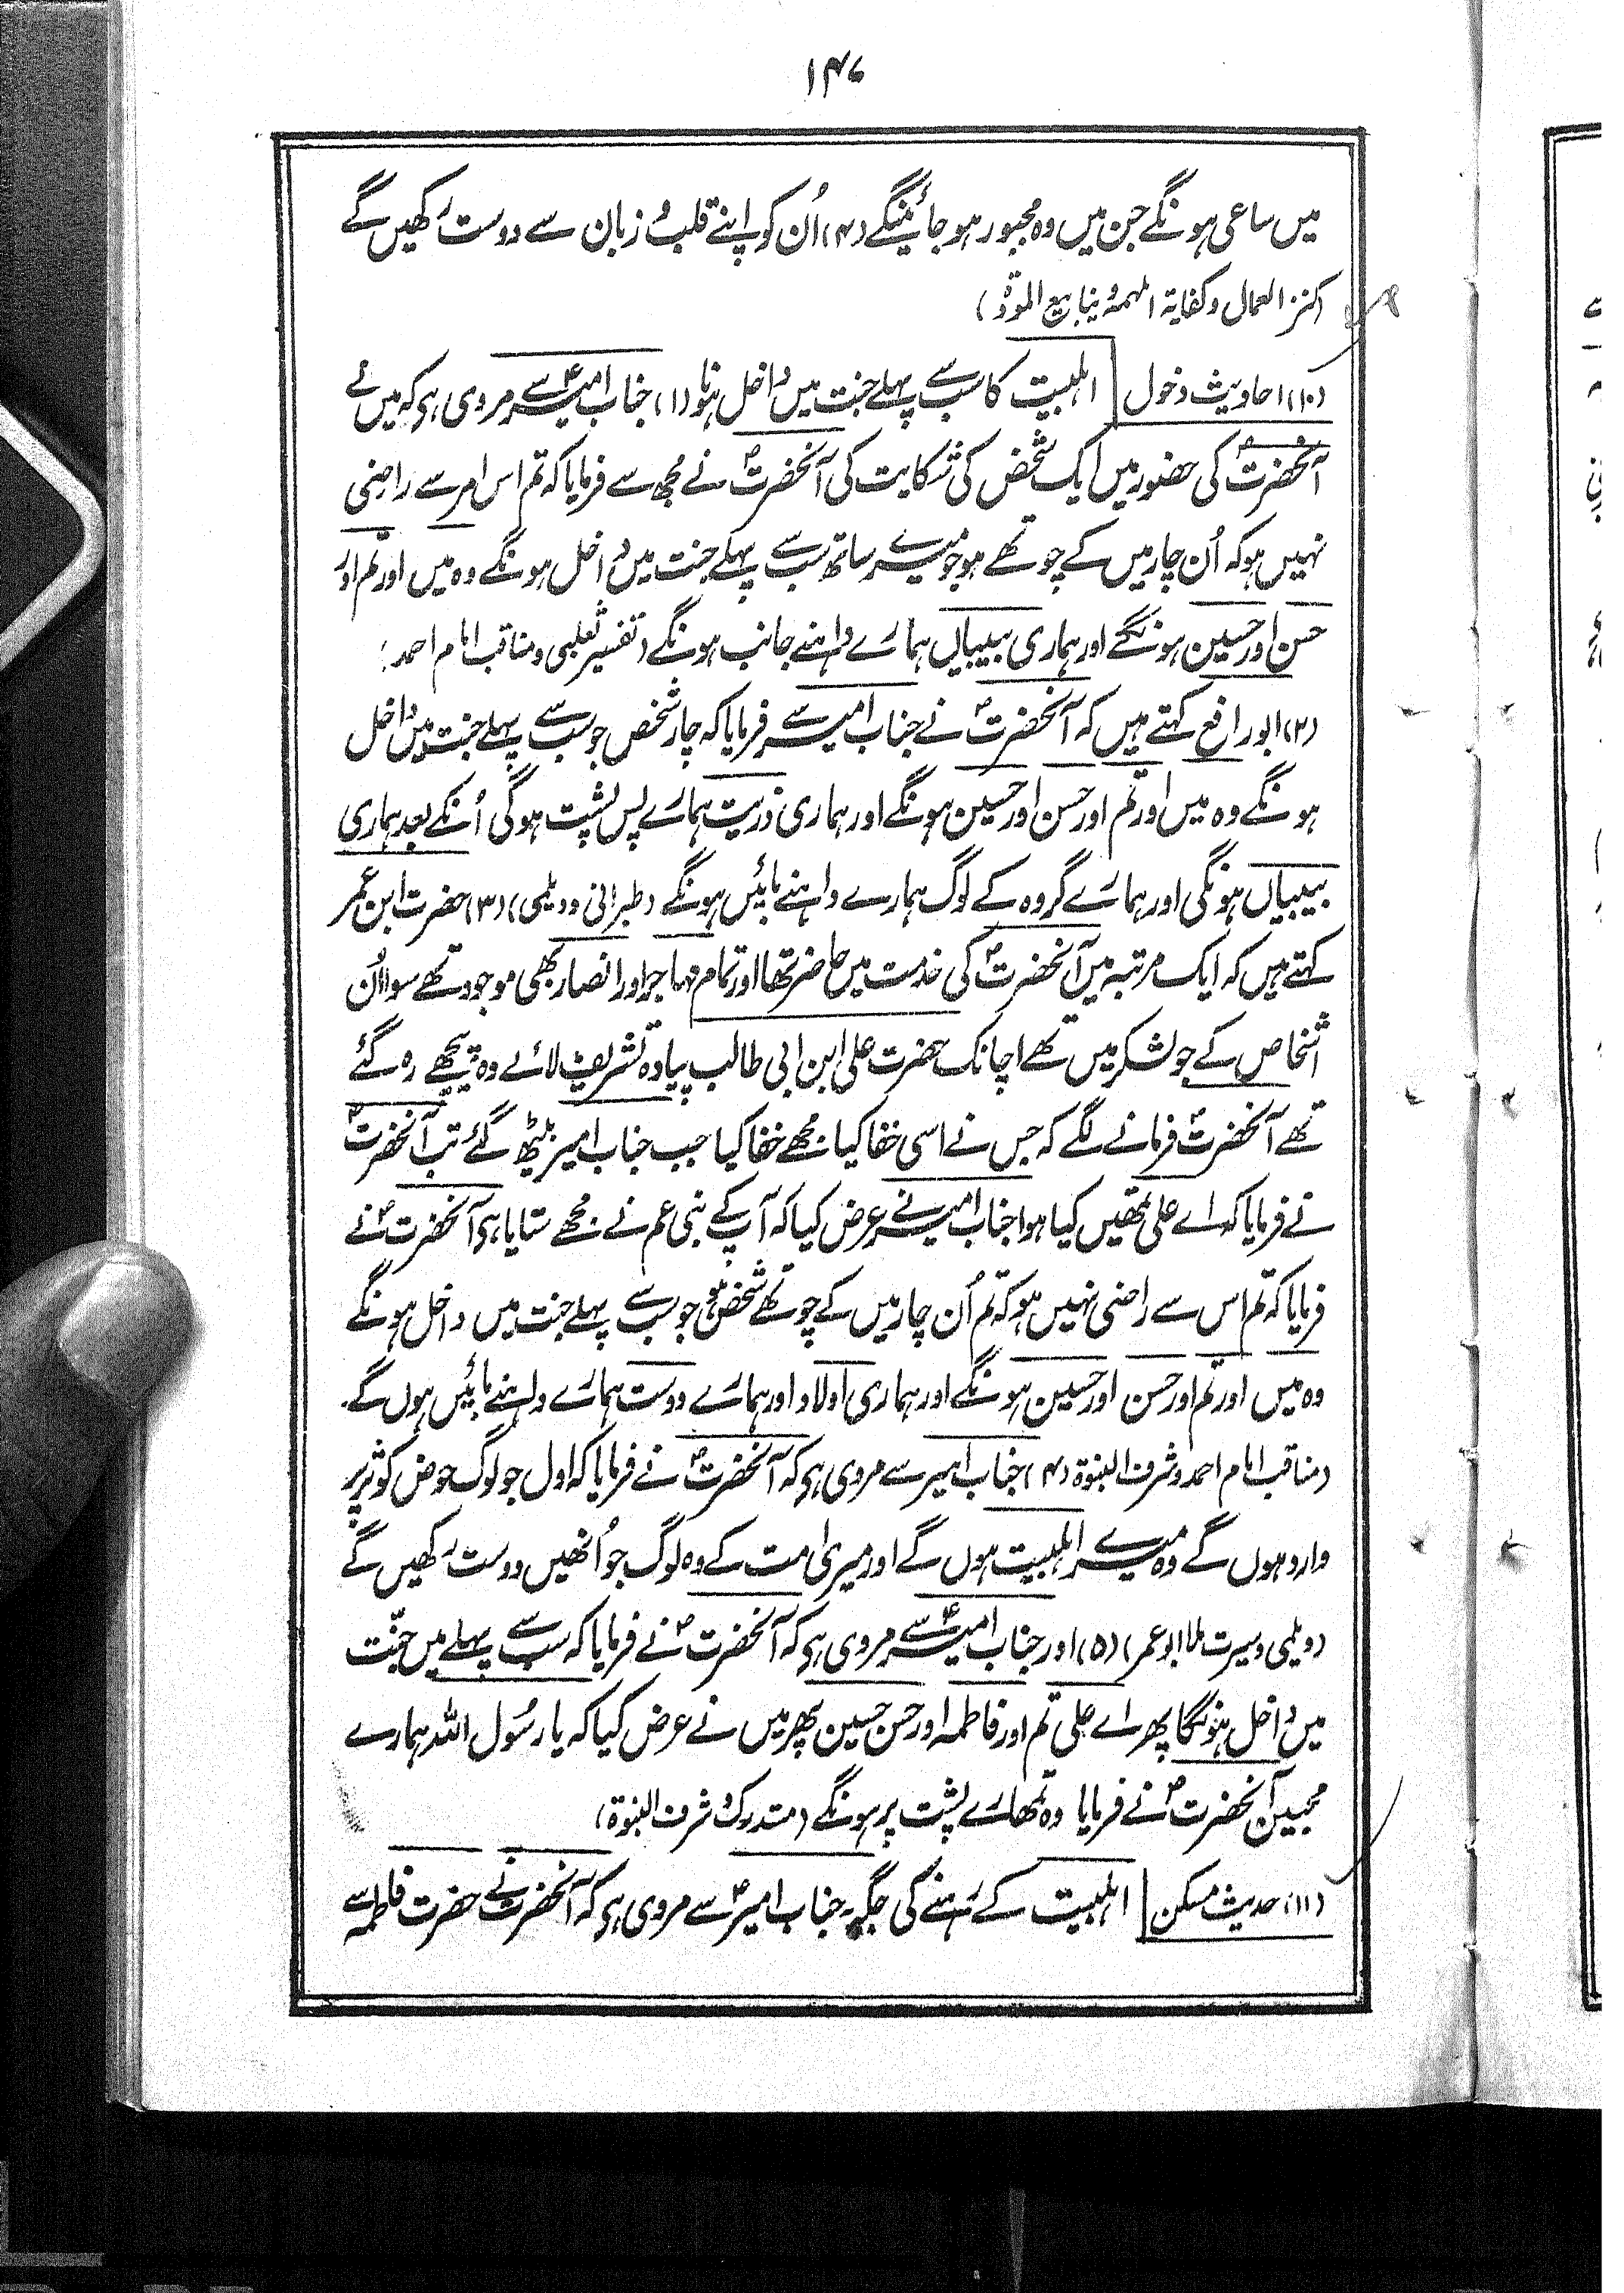 ۱۴۷
میں ساعی ہونگے جن میں وہ مجبور ہو جائینگے (۴) اُن کو اپنے قلب و زبان سے دوست رکھیں گے
(کنز العمال و کفایۃ المہمہ و ینابیع المودّۃ)
(۱۰) احادیث دخول اہلبیت کا سب سے پہلے جنت میں داخل ہونا (۱) جناب امیرؑ سے مروی ہی کہ میں نے
آنحضرتؐ کی حضور میں ایک شخص کی شکایت کی آنحضرتؐ نے مجھ سے فرمایا کہ تم اس امر سے راضی
نہیں ہو کہ اُن چار میں کے چوتھے ہو جو میرے ساتھ سب سے پہلے جنت میں داخل ہونگے وہ میں اور تم اور
حسن اور حسین ہونگے اور ہماری بیبیاں ہمارے داہنے جانب ہونگے (تفسیر ثعلبی و مناقب امام احمد)
(۲) ابو رافع کہتے ہیں کہ آنحضرتؐ نے جناب امیر سے فرمایا کہ چار شخص جو سب سے پہلے جنت میں داخل
ہونگے وہ میں اور تم اور حسن اور حسین ہونگے اور ہماری ذریت ہمارے پس پشت ہوگی اُنکے بعد ہماری
بیبیاں ہونگی اور ہمارے گروہ کے لوگ ہمارے داہنے بائیں ہونگے (طبرانی و دیلمی) (۳) حضرت ابن عمر
کہتے ہیں کہ ایک مرتبہ میں آنحضرتؐ کی خدمت میں حاضر تھا اور تمام مہاجر اور انصار بھی موجود تھے سوا اُن
اشخاص کے جو لشکر میں تھے اچانک حضرت علی ابن ابی طالب پیادہ تشریف لائے وہ پیچھے رہ گئے
تھے آنحضرتؐ فرمانے لگے کہ جس نے اسی خفا کیا مجھے خفا کیا جب جناب امیر بیٹھ گئے تب آنحضرتؐ
نے فرمایا کہ اے علی تمھیں کیا ہوا جناب امیر نے عرض کیا کہ آپ کے بنی عم نے مجھے ستایا ہی آنحضرتؐ نے
فرمایا کہ تم اس سے راضی نہیں ہو کہ تم اُن چار میں کے چوتھے شخص ہو جو سب سے پہلے جنت میں داخل ہونگے
وہ میں اور تم اور حسن اور حسین ہونگے اور ہماری اولاد اور ہمارے دوست ہمارے داہنے بائیں ہوں گے۔
(مناقب امام احمد و شرف النبوۃ) (۴) جناب امیر سے مروی ہی کہ آنحضرتؐ نے فرمایا کہ اول جو لوگ حوض کوثر پر
وارد ہوں گے وہ میرے اہلبیت ہوں گے اور میری امت کے وہ لوگ جو اُنھیں دوست رکھیں گے
(دیلمی و سیرت ملا ابو عمر) (۵) اور جناب امیرؑ سے مروی ہی کہ آنحضرتؐ نے فرمایا کہ سب سے پہلے میں جنّت
میں داخل ہونگا پھر اے علی تم اور فاطمہ اور حسن حسین پھر میں نے عرض کیا کہ یا رسُول اللہ ہمارے
محبین آنحضرتؐ نے فرمایا وہ تمھارے پشت پر ہونگے (مستدرک و شرف النبوۃ)
(۱۱) حدیث مسکن اہلبیت کے رہنے کی جگہ۔ جناب امیرؑ سے مروی ہی کہ آنحضرت نے حضرت فاطمہ سے